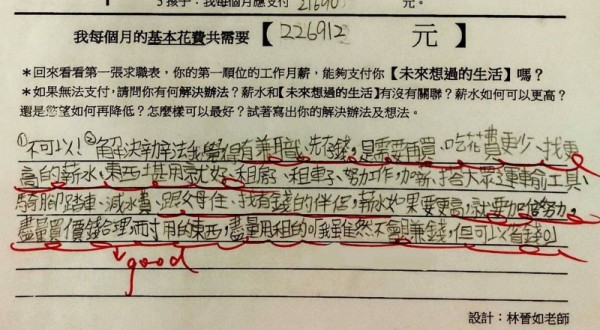 3孩子：我每個月應支付 21690 元。
我每個月的基本花費共需要【226912 元】
＊回來看看第一張求職表，你的第一順位的工作月薪，能夠支付你【未來想過的生活】嗎？
＊如果無法支付，請問你有何解決辦法？薪水和【未來想過的生活】有沒有關聯？薪水如何可以更高？
還是慾望如何再降低？怎麼樣可以最好？試著寫出你的解決辦法及想法。
①不可以！②解決辦法我覺得有兼職、先存錢，是需要再買、吃花費更少、找更
高的薪水、東西堪用就好、租房、租車子、努力工作，加薪、搭大眾運輸工具、
騎腳踏車、減水費、跟父母住、找有錢的伴侶，薪水如果要更高，就要加倍努力。
盡量買價錢合理而耐用的東西，盡量用租的，我雖然不會賺錢，但可以省錢。
good
設計：林晉如老師